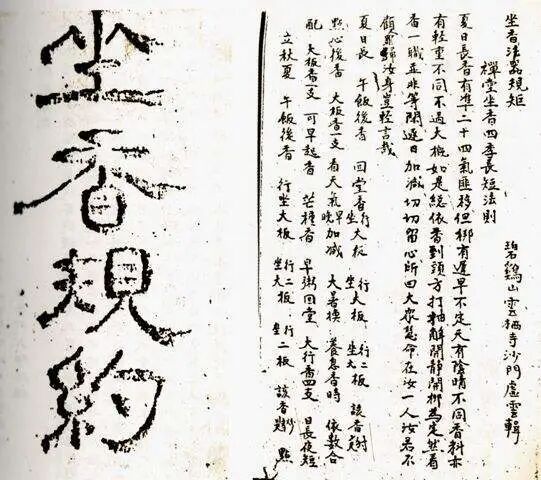 坐香規約
坐香法器規矩 碧鷄山雲栖寺沙門虛雲輯
禪堂坐香四季長短法則
夏日長香有準二十四氣匪移但梆有遲早不定天有陰晴不同香料亦
有輕重不同不過大概如是總依香到頭方打抽解開靜開梆為定然看
香一職並非等閒逐日加減切切留心所因大衆慧命在汝一人汝若不
顧罪歸汝身豈輕言哉
夏日長 午飯後香 回堂香行大板 坐大板 行二板 該香
點心後香 大板香一支 看天氣早晚加減 大暑換 養息香時 依數合
配 大板香一支 可早起香 芒種香 早粥回堂 大行香四支 日長夜短
立秋夏 午飯後香 行坐大板 行二板 坐二板 該香 點